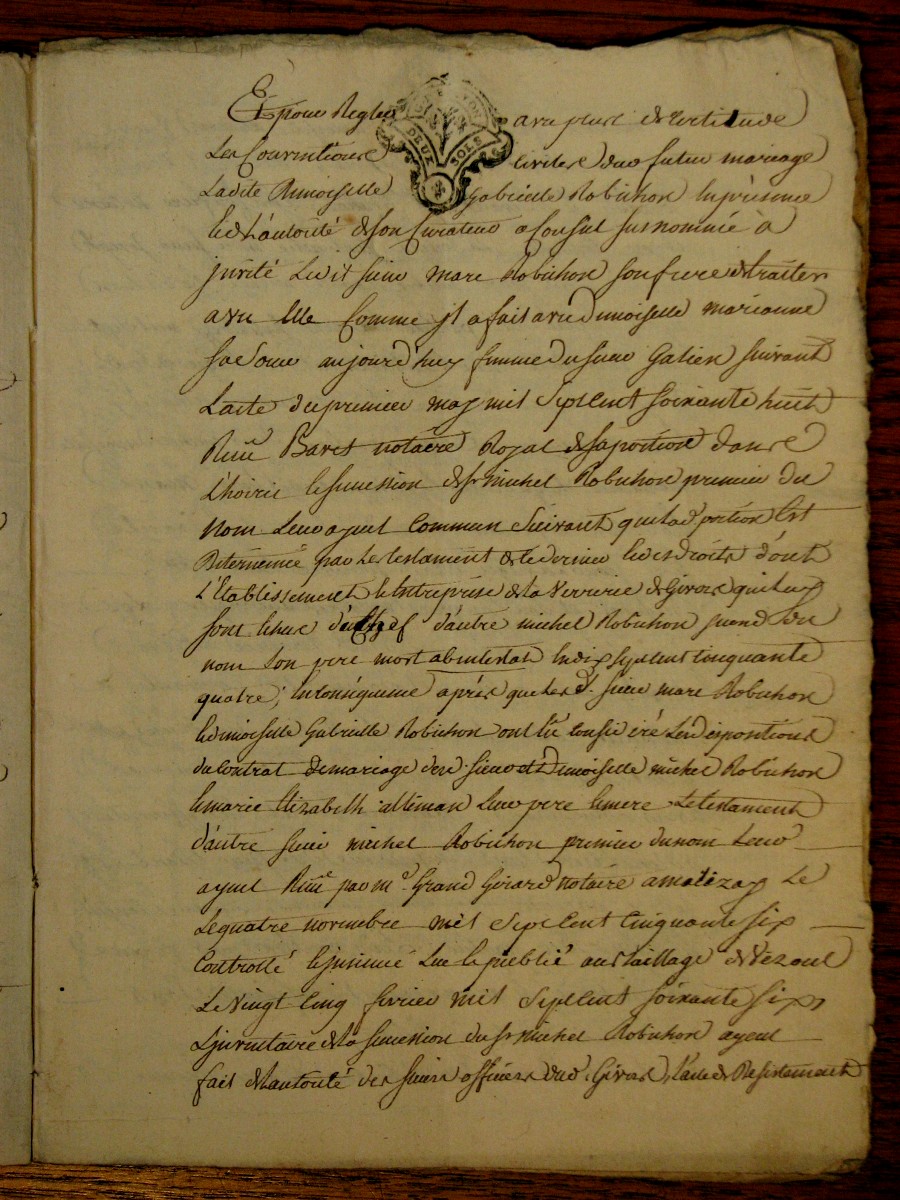 Et pour Regler avec plus de Certitude
DEUX SOLS
Les Conventions civiles dud futur mariage
Ladite Demoiselle Gabrielle Robichon En présence
Et de L'autorité de son Curateur a Consul susnommé à
jnvité Ledit sieur Marc Robichon son frere de traiter
avec Elle Comme jl a fait avec Demoiselle marianne
sa soeur aujourd'huy femme du sieur Galien suivant
L'acte du premier may mil Sept Cent soixante huit
Reçu Baret notaire Royal de sa portion dans
L'hoirie et succession de sr michel Robichon premier du
Nom Leur ayeul Commun Suivant que lad portion Est
Determinée par Le testament de ce dernier et des droits dont
L'Etablissement et Entreprise de La Verrerie de Givors qui Leur
sont Echus du Chef d'autre michel Robichon second du
nom son pere mort abintestat En dix sept cent cinquante
quatre; En conséquence après que Les d. sieur marc Robichon
Et demoiselle Gabrielle Robichon ont Lû Consideré Les dispositions
du Contrat de mariage des sieur et Demoiselle michel Robichon
Et marie Elizabeth alliman Leur pere et mere Le testament
d'autre sieur michel Robichon premier du nom Leur
ayeul Reçu par me Grand Girard notaire a Le
Le quatre novembre mil Sept Cent Cinquante six
Controllé et jnsinué Lu et publié au Baillage de Vezoul
Le Vingt Cinq fevrier mil Sept Cent soixante six,
L'jnventaire de La succession du sr michel Robichon ayeul
fait de L'autorité des sieurs officiers dud. Givors, L'acte de Desistement